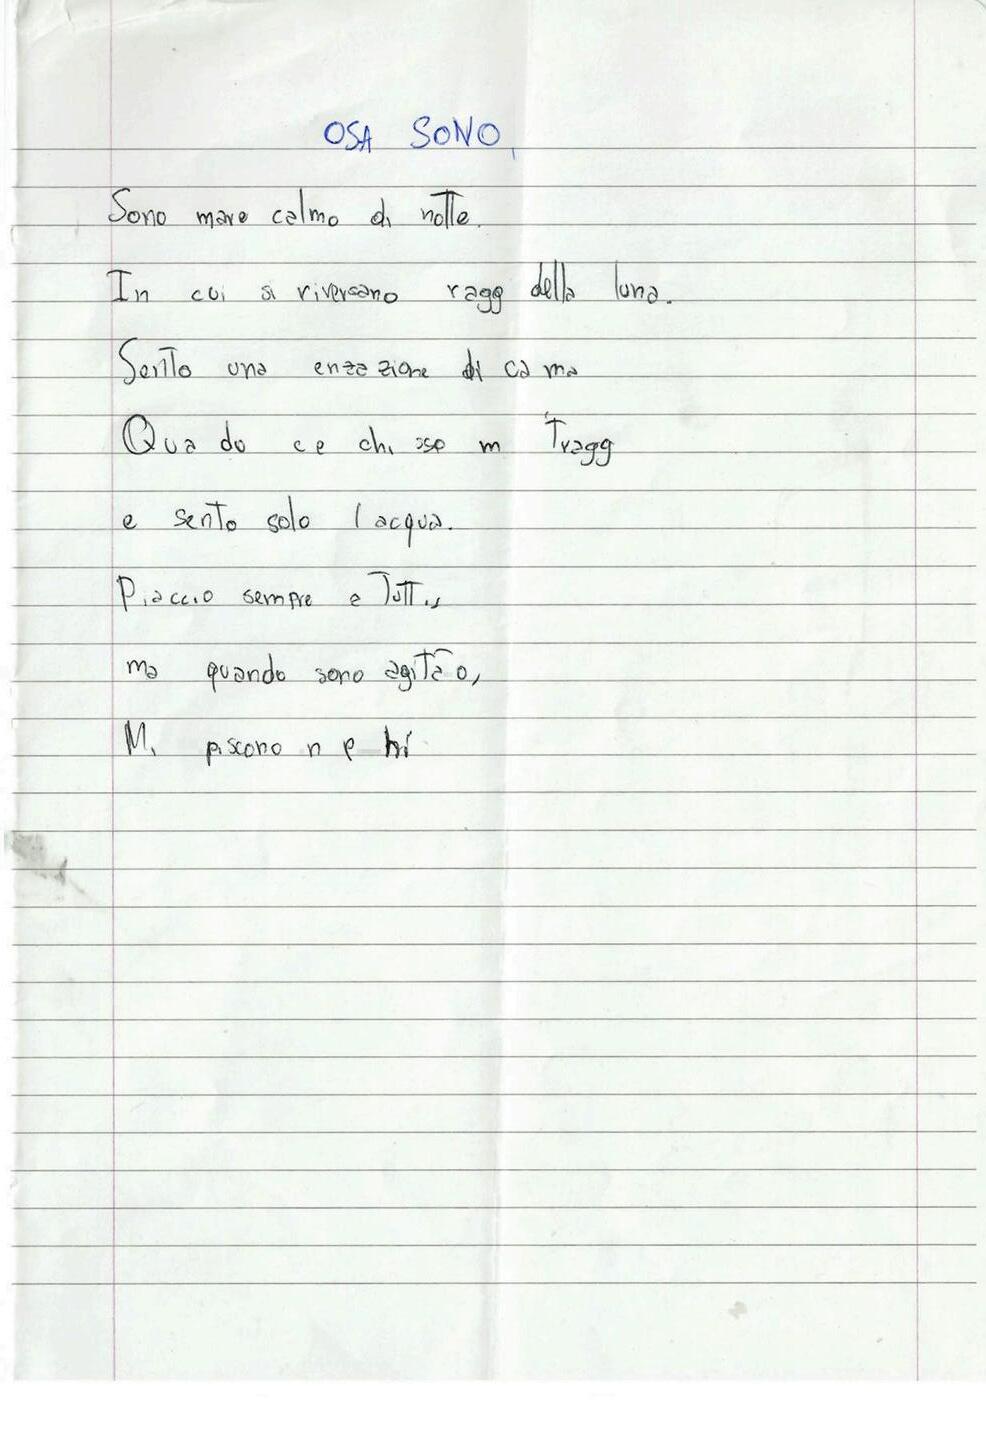 OSA SONO,
Sono mare calmo di notte.
In cui si riversano ragg della luna.
Sento una enzazione di ca ma
Qua do c e chi sse m tragg
e sento solo l acqua.
Piaccio sempre a Tutti,
ma quando sono agita o,
Mi piscono n p hi